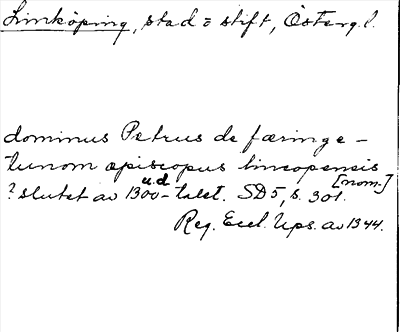 Linköping, stad o stift, Österg.l.
dominus Petrus de færinge-
tunom episcopus lincopensis
[nom.]
? slutet av 1300-talet. u.d. SD5, s. 301.
Reg. Eccl. Ups. av 1344.